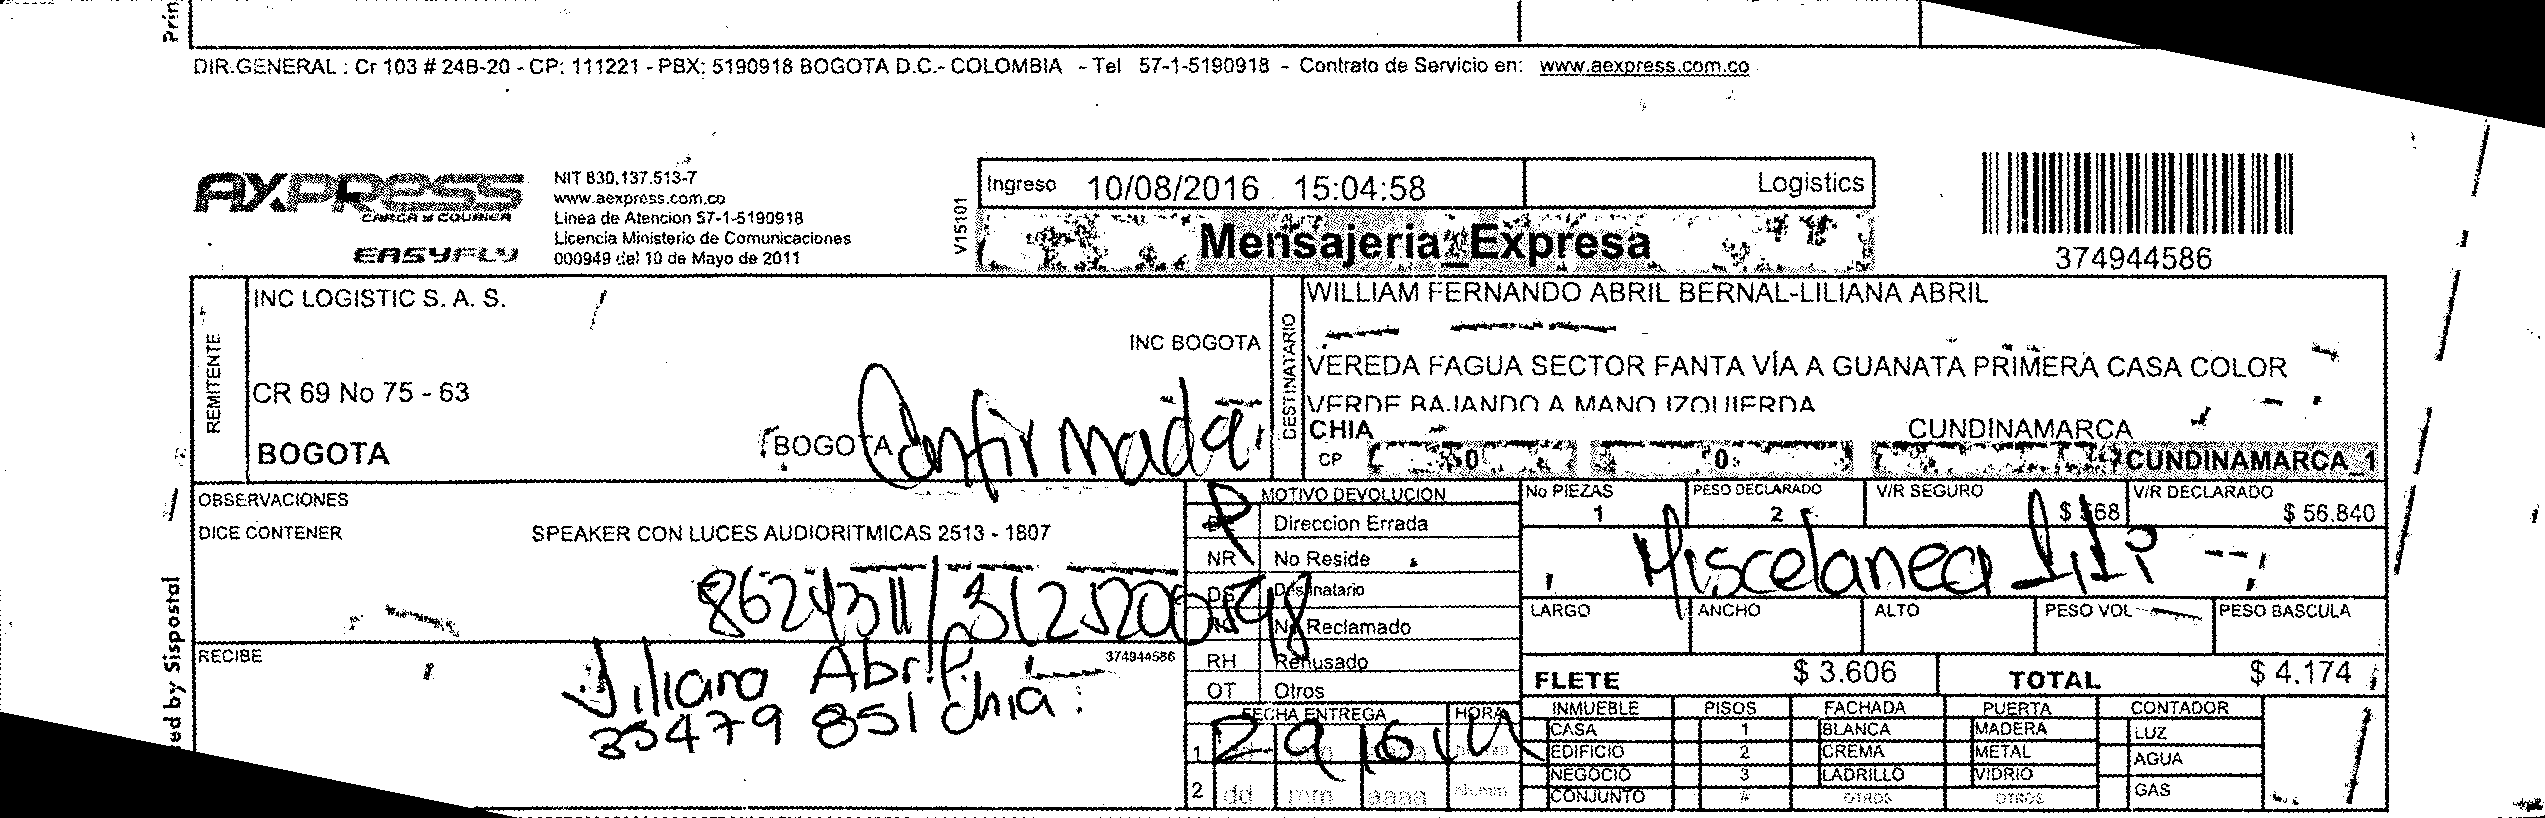 DIR.GENERAL : Cr 103 # 24B-20 - CP: 111221 - PBX: 5190918 BOGOTA D.C.- COLOMBIA - Tel 57-1-5190918 - Contrato de Servicio en: www.aexpress.com.co
AXPRESS
CARGA Y COURIER
EASYFLY
NIT 830.137.513-7
www.aexpress.com.co
Linea de Atencion 57-1-5190918
Licencia Ministerio de Comunicaciones
000949 del 10 de Mayo de 2011
V15101
Ingreso 10/08/2016 15:04:58 Logistics
Mensajeria_Expresa
374944586
REMITENTE
INC LOGISTIC S. A. S.
INC BOGOTA
CR 69 No 75 - 63
BOGOTA
BOGOTA
Confirmada
DESTINATARIO
WILLIAM FERNANDO ABRIL BERNAL-LILIANA ABRIL
VEREDA FAGUA SECTOR FANTA VÍA A GUANATA PRIMERA CASA COLOR
VERDE BAJANDO A MANO IZQUIERDA
CHIA CUNDINAMARCA
CP 0 0 CUNDINAMARCA_1
OBSERVACIONES
DICE CONTENER SPEAKER CON LUCES AUDIORITMICAS 2513 - 1807
RECIBE
374944586
Liliana Abril
35479 851 Chia
MOTIVO DEVOLUCION
DE Direccion Errada
NR No Reside
DS Desinatario
No Reclamado
RH Rehusado
OT Otros
FECHA ENTREGA HORA
1
2 dd mm aaaa hh:mm
No PIEZAS 1
PESO DECLARADO 2
V/R SEGURO $ 568
V/R DECLARADO $ 56.840
Miscelanea
LARGO ANCHO ALTO PESO VOL PESO BASCULA
FLETE $ 3.606 TOTAL $ 4.174
INMUEBLE PISOS FACHADA PUERTA CONTADOR
CASA 1 BLANCA MADERA LUZ
EDIFICIO 2 CREMA METAL AGUA
NEGOCIO 3 LADRILLO VIDRIO GAS
CONJUNTO # OTROS OTROS
ed by Sispostal